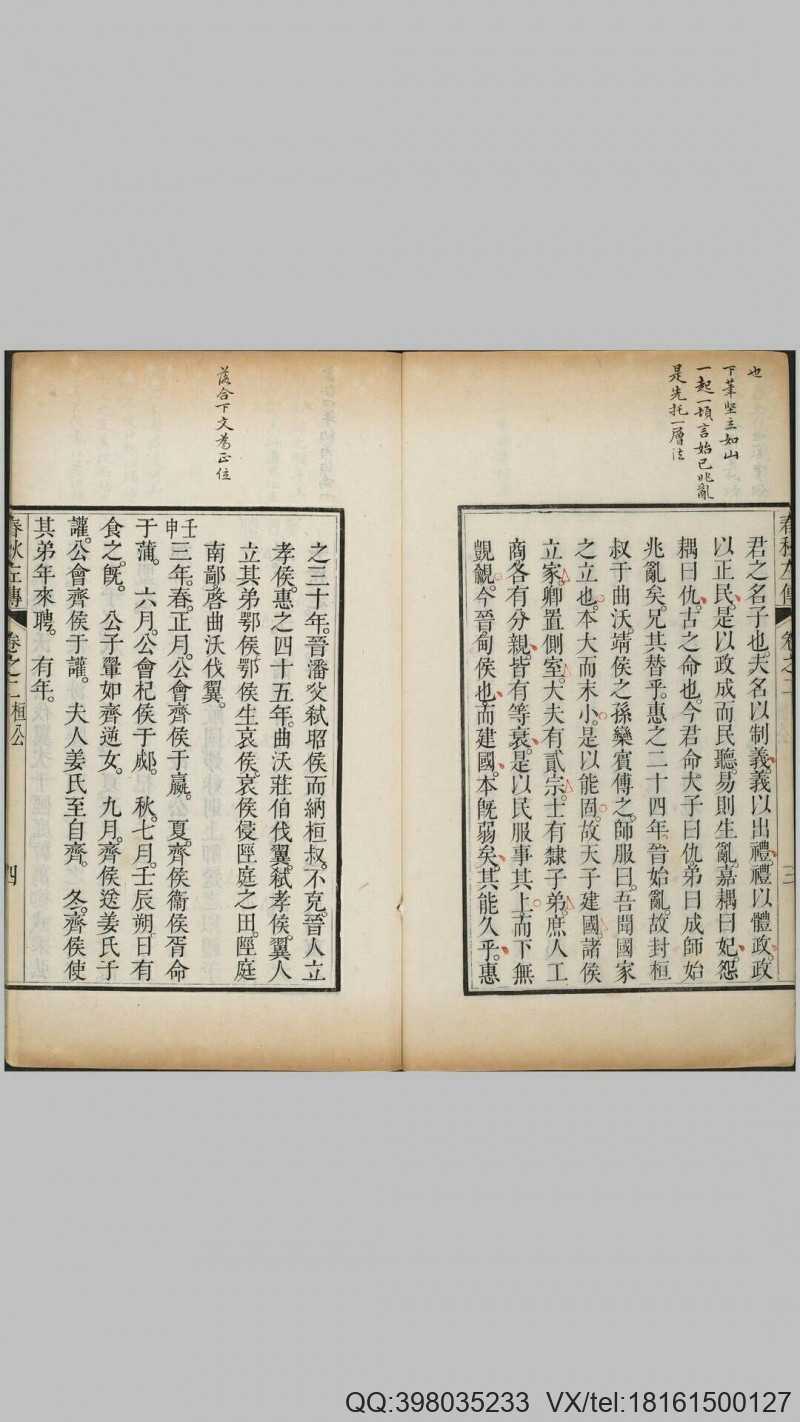 也
下筆堅立如山
一起一頓言始已兆亂
是先托一層法
春秋左傳 卷之二 三
君之名子也夫名以制義義以出禮禮以體政政
以正民是以政成而民聽易則生亂嘉耦曰妃怨
耦曰仇古之命也今君命大子曰仇弟曰成師始
兆亂矣兄其替乎惠之二十四年晉始亂故封桓
叔于曲沃靖侯之孫欒賓傅之師服曰吾聞國家
之立也本大而末小是以能固故天子建國諸侯
立家卿置側室大夫有貳宗士有隸子弟庶人工
商各有分親皆有等衰是以民服事其上而下無
覬覦今晉甸侯也而建國本既弱矣其能久乎惠
落合下文為正位
之三十年。晉潘父弒昭侯而納桓叔。不克。晉人立
孝侯。惠之四十五年。曲沃莊伯伐翼。弒孝侯。翼人
立其弟鄂侯。鄂侯生哀侯。哀侯侵陘庭之田。陘庭
南鄙啓曲沃伐翼。
壬申三年。春。正月。公會齊侯于嬴。 夏。齊侯衞侯胥命
于蒲。 六月。公會杞侯于郕。 秋。七月。壬辰朔。日有
食之。既。 公子翬如齊逆女。 九月。齊侯送姜氏于
讙。公會齊侯于讙。 夫人姜氏至自齊。 冬。齊侯使
其弟年來聘。 有年。
春秋左傳 卷之二 桓公 四
QQ:398035233 VX/tel:18161500127